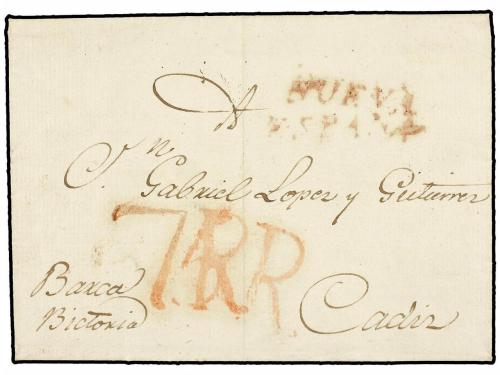 NUEVA
ESPAÑA
A
Sn.
Gabriel Lopez y Gutierrez
7RR
Barca
Bictoria
Cadiz